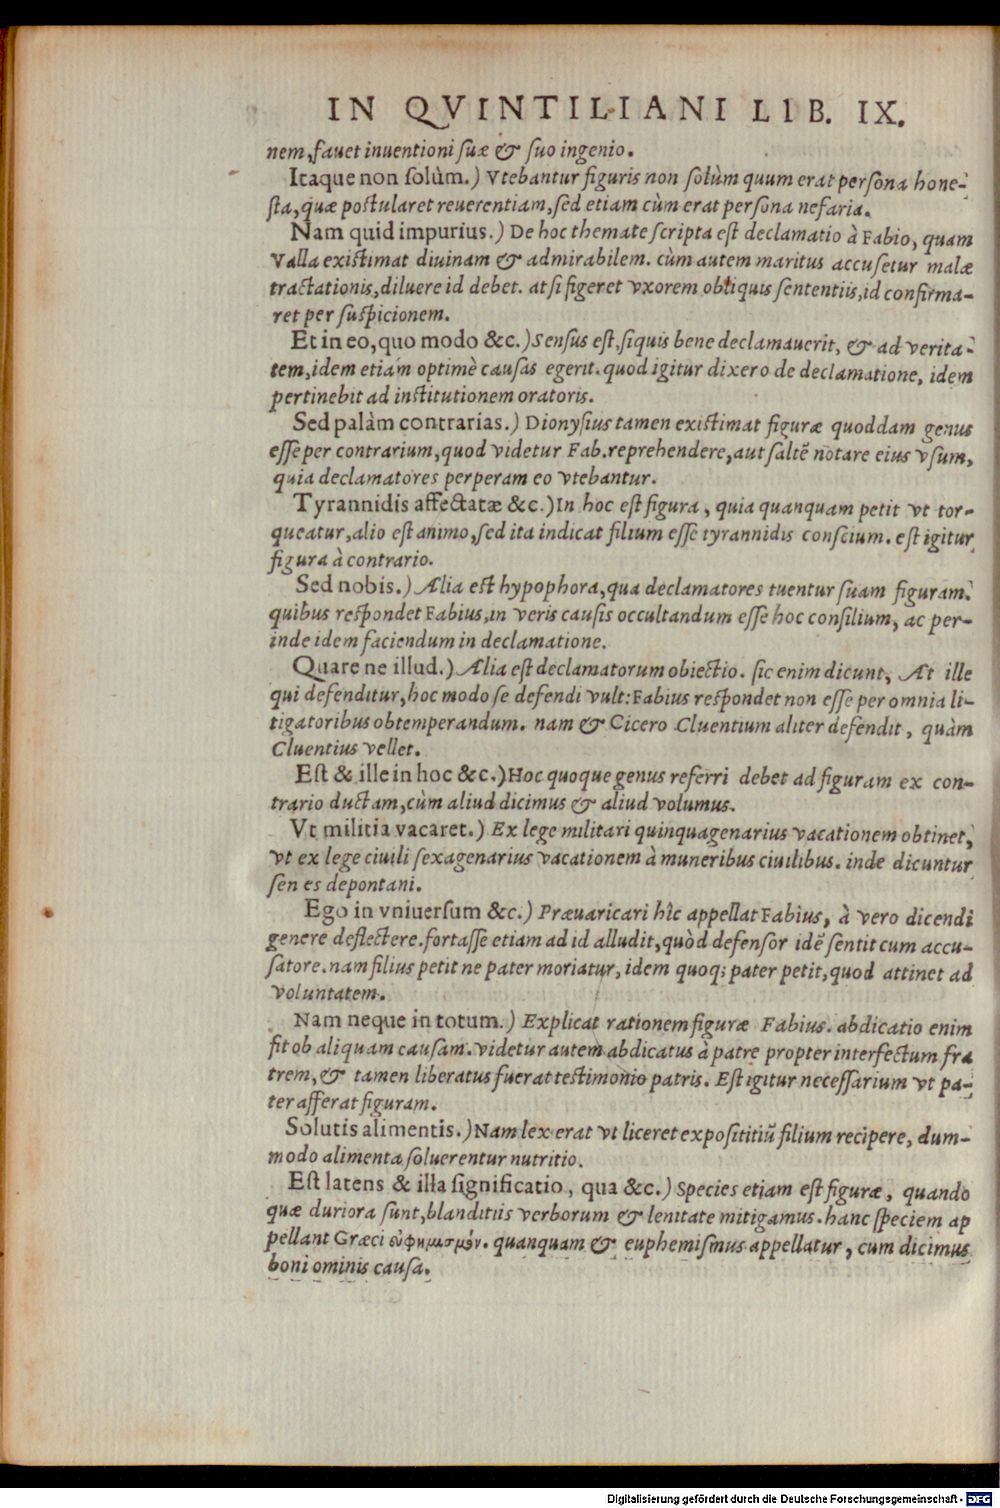 IN QVINTILIANI LIB. IX.
nem, fauet inuentioni suæ & suo ingenio.
Itaque non solùm.) Vtebantur figuris non solùm quum erat persona hone-
sta, quæ postularet reuerentiam, sed etiam cùm erat persona nefaria.
Nam quid impurius.) De hoc themate scripta est declamatio à Fabio, quam
Valla existimat diuinam & admirabilem. cùm autem maritus accusetur malæ
tractationis, diluere id debet. at si figeret vxorem obliquis sententiis, id confirma-
ret per suspicionem.
Et in eo, quo modo &c.) Sensus est, siquis bene declamauerit, & ad verita-
tem, idem etiam optimè causas egerit. quod igitur dixero de declamatione, idem
pertinebit ad institutionem oratoris.
Sed palàm contrarias.) Dionysius tamen existimat figuræ quoddam genus
esse per contrarium, quod videtur Fab. reprehendere, aut saltẽ notare eius vsum,
quia declamatores perperam eo vtebantur.
Tyrannidis affectatæ &c.) In hoc est figura, quia quanquam petit vt tor-
queatur, alio est animo, sed ita indicat filium esse tyrannidis conscium. est igitur
figura à contrario.
Sed nobis.) Alia est hypophora, qua declamatores tuentur suam figuram.
quibus respondet Fabius, in veris causis occultandum esse hoc consilium, ac per-
inde idem faciendum in declamatione.
Quare ne illud.) Alia est declamatorum obiectio. sic enim dicunt, At ille
qui defenditur, hoc modo se defendi vult: Fabius respondet non esse per omnia li-
tigatoribus obtemperandum. nam & Cicero Cluentium aliter defendit, quàm
Cluentius vellet.
Est & ille in hoc &c.) Hoc quoque genus referri debet ad figuram ex con-
trario ductam, cùm aliud dicimus & aliud volumus.
Vt militia vacaret.) Ex lege militari quinquagenarius vacationem obtinet,
vt ex lege ciuili sexagenarius vacationem à muneribus ciuilibus. inde dicuntur
sen es depontani.
Ego in vniuersum &c.) Præuaricari hîc appellat Fabius, à vero dicendi
genere deflectere. fortasse etiam ad id alludit, quòd defensor idẽ sentit cum accu-
satore. nam filius petit ne pater moriatur, idem quoq; pater petit, quod attinet ad
voluntatem.
Nam neque in totum.) Explicat rationem figuræ Fabius. abdicatio enim
fit ob aliquam causam. videtur autem abdicatus à patre propter interfectum fra
trem, & tamen liberatus fuerat testimonio patris. Est igitur necessarium vt pa-
ter afferat figuram.
Solutis alimentis.) Nam lex erat vt liceret expositiũ filium recipere, dum-
modo alimenta soluerentur nutritio.
Est latens & illa significatio, qua &c.) Species etiam est figuræ, quando
quæ duriora sunt, blanditiis verborum & lenitate mitigamus. hanc speciem ap
pellant Græci εὐφημισμόν. quanquam & euphemismus appellatur, cum dicimus
boni ominis causa.
Digitalisierung gefördert durch die Deutsche Forschungsgemeinschaft - DFG